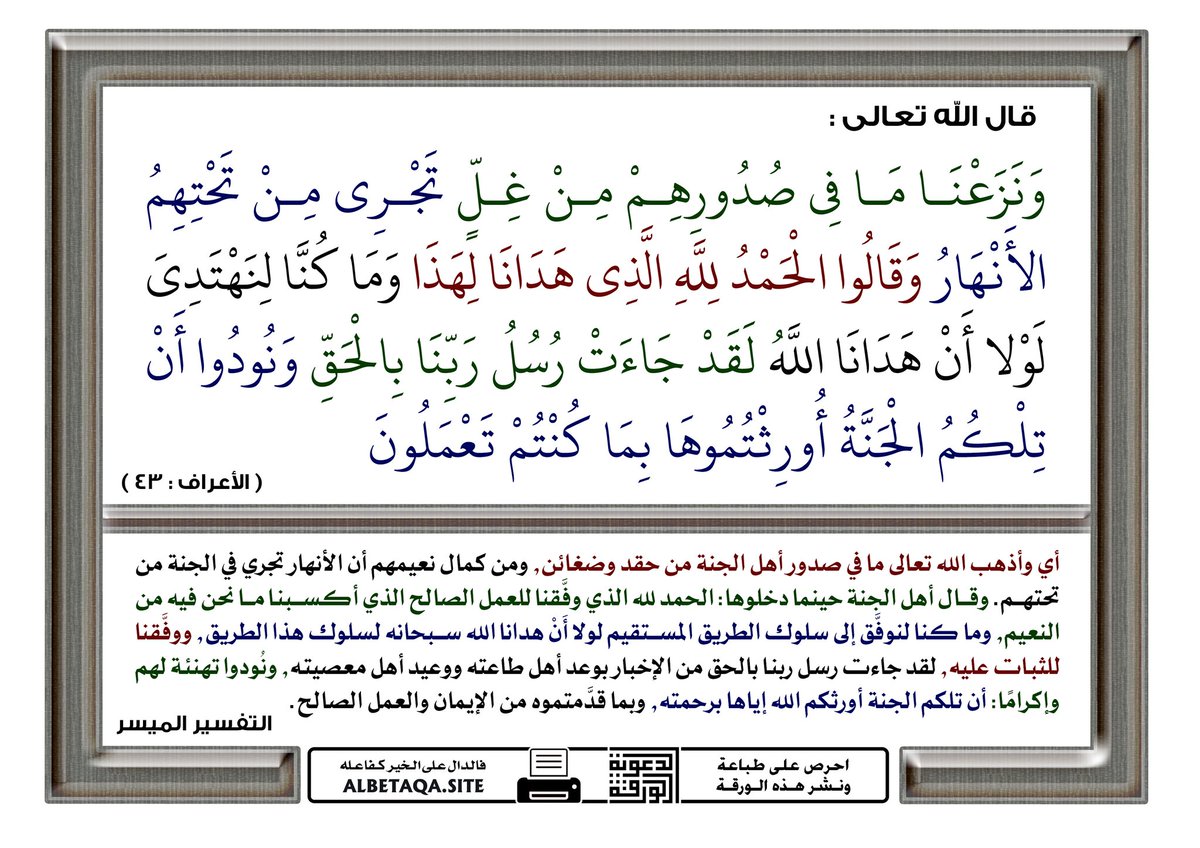 قال الله تعالى :
وَنَزَعْنَا مَا فِي صُدُورِهِمْ مِنْ غِلٍّ تَجْرِى مِنْ تَحْتِهِمُ
الأَنْهَارُ وَقَالُوا الْحَمْدُ لِلَّهِ الَّذِى هَدَانَا لِهَذَا وَمَا كُنَّا لِنَهْتَدِىَ
لَوْلا أَنْ هَدَانَا اللَّهُ لَقَدْ جَاءَتْ رُسُلُ رَبِّنَا بِالْحَقِّ وَنُودُوا أَنْ
تِلْكُمُ الْجَنَّةُ أُورِثْتُمُوهَا بِمَا كُنْتُمْ تَعْمَلُونَ
( الأعراف : ٤٣ )
أي وأذهب الله تعالى ما في صدور أهل الجنة من حقد وضغائن, ومن كمال نعيمهم أن الأنهار تجري في الجنة من
تحتهم. وقال أهل الجنة حينما دخلوها: الحمد لله الذي وفَّقنا للعمل الصالح الذي أكسبنا ما نحن فيه من
النعيم, وما كنا لنوفَّق إلى سلوك الطريق المستقيم لولا أَنْ هدانا الله سبحانه لسلوك هذا الطريق, ووفَّقنا
للثبات عليه, لقد جاءت رسل ربنا بالحق من الإخبار بوعد أهل طاعته ووعيد أهل معصيته, ونُودوا تهنئة لهم
وإكرامًا: أن تلكم الجنة أورثكم الله إياها برحمته, وبما قدَّمتموه من الإيمان والعمل الصالح.
التفسير الميسر
احرص على طباعة
ونشر هذه الورقة
الورقة
الدعوية
فالدال على الخير كفاعله
ALBETAQA.SITE